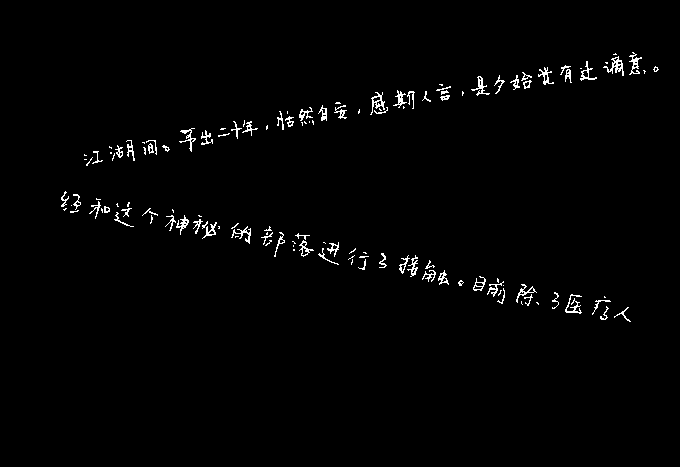 江湖间。予出二十年，恬然自安，感期人言，是夕始觉有迁谪意。。
经和这个神秘的部落进行了接触。目前除、了医疗人